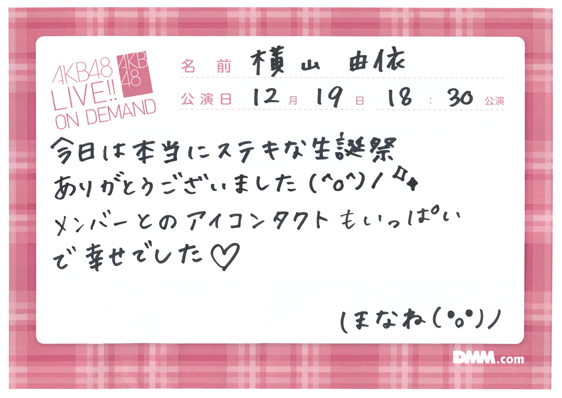 AKB48
LIVE!!
ON DEMAND
AKB
48
名前 横山 由依
公演日 12月 19日 18:30公演
今日は本当にステキな生誕祭
ありがとうございました(^o^)ノ
メンバーとのアイコンタクトもいっぱい
で幸せでした♡
ほなね(°o°)ノ
DMM.com